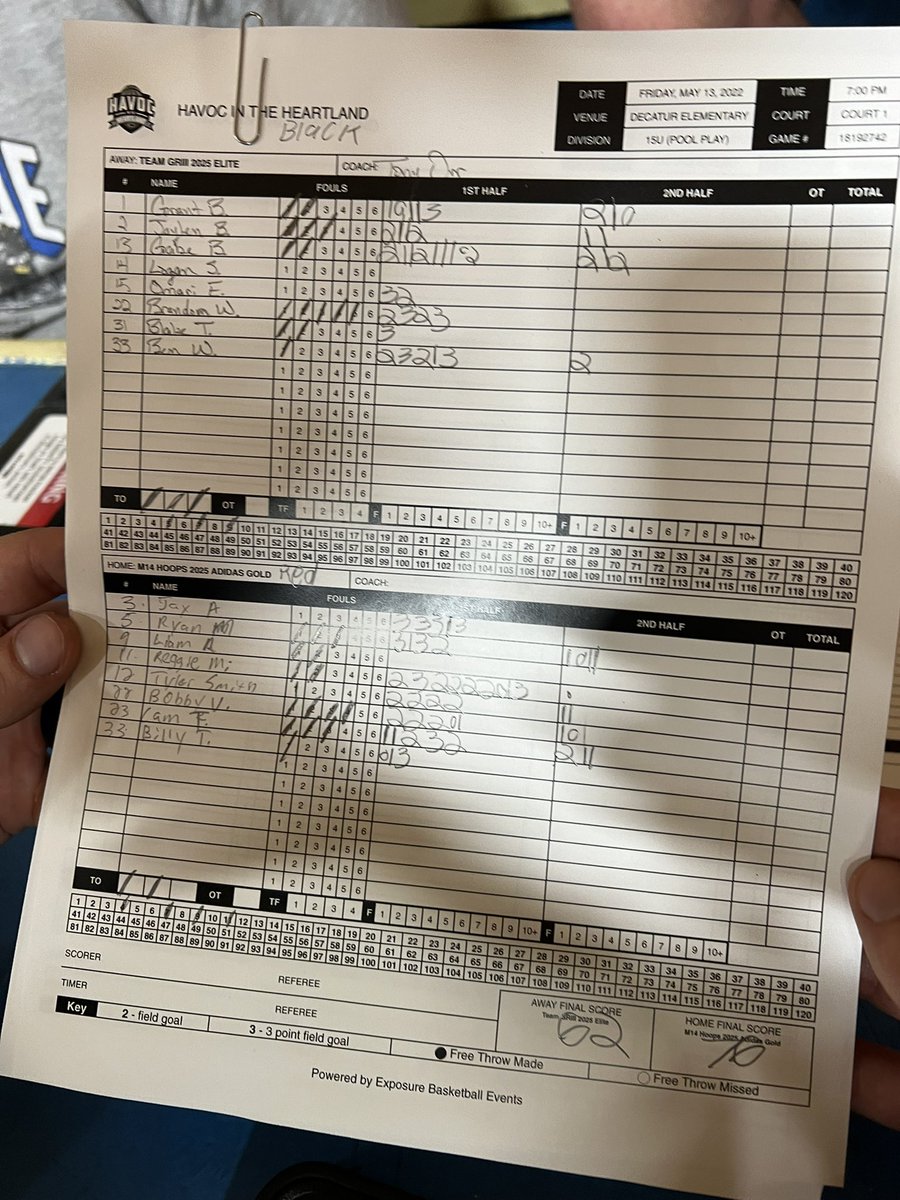 HAVOC
HAVOC IN THE HEARTLAND
BLACK
DATE FRIDAY, MAY 13, 2022 TIME 7:00 PM
VENUE DECATUR ELEMENTARY COURT COURT 1
DIVISION 15U (POOL PLAY) GAME # 18192742
AWAY: TEAM GRIII 2025 ELITE COACH: Tony
# NAME FOULS 1ST HALF 2ND HALF OT TOTAL
1 Grant B. 3 4 5 6
2 Jayden B. 4 5 6 212 11
13 Gabe B. 3 4 5 6 212
14 Logan S. 1 2 3 4 5 6
15 Omari F. 1 2 3 4 5 6 32
22 Brandon W. 6 2323
31 Blake T. 3 4 5 6 3
33 Ben W. 2 3 4 5 6 23213 2
1 2 3 4 5 6
1 2 3 4 5 6
1 2 3 4 5 6
1 2 3 4 5 6
1 2 3 4 5 6
1 2 3 4 5 6
TO OT TF 1 2 3 4 F 1 2 3 4 5 6 7 8 9 10+ F 1 2 3 4 5 6 7 8 9 10+
1 2 3 4 5 6 7 8 9 10 11 12 13 14 15 16 17 18 19 20 21 22 23 24 25 26 27 28 29 30 31 32 33 34 35 36 37 38 39 40
41 42 43 44 45 46 47 48 49 50 51 52 53 54 55 56 57 58 59 60 61 62 63 64 65 66 67 68 69 70 71 72 73 74 75 76 77 78 79 80
81 82 83 84 85 86 87 88 89 90 91 92 93 94 95 96 97 98 99 100 101 102 103 104 105 106 107 108 109 110 111 112 113 114 115 116 117 118 119 120
HOME: M14 HOOPS 2025 ADIDAS GOLD Red COACH:
# NAME FOULS 1ST HALF 2ND HALF OT TOTAL
3 Jax A 1 2 3 4 5 6
5 Ryan 4 5 6 3132
9 Liam R 3 4 5 6
11 Reggie M. 3 4 5 6
12 Tyler Smith 2 3 4 5 6 2222
22 Bobby V. 5 6 22201 11
23 Cam F. 4 5 6 11232 10
33 Billy T. 2 3 4 5 6 211
2 3 4 5 6
1 2 3 4 5 6
1 2 3 4 5 6
1 2 3 4 5 6
1 2 3 4 5 6
1 2 3 4 5 6
TO OT TF 1 2 3 4 F 1 2 3 4 5 6 7 8 9 10+ F 1 2 3 4 5 6 7 8 9 10+
1 2 3 4 5 6 7 8 9 10 11 12 13 14 15 16 17 18 19 20 21 22 23 24 25 26 27 28 29 30 31 32 33 34 35 36 37 38 39 40
41 42 43 44 45 46 47 48 49 50 51 52 53 54 55 56 57 58 59 60 61 62 63 64 65 66 67 68 69 70 71 72 73 74 75 76 77 78 79 80
81 82 83 84 85 86 87 88 89 90 91 92 93 94 95 96 97 98 99 100 101 102 103 104 105 106 107 108 109 110 111 112 113 114 115 116 117 118 119 120
SCORER REFEREE AWAY FINAL SCORE HOME FINAL SCORE
Team GRIII 2025 Elite M14 Hoops 2025 Adidas Gold
TIMER REFEREE 62 70
Key 2 - field goal 3 - 3 point field goal Free Throw Made Free Throw Missed
Powered by Exposure Basketball Events